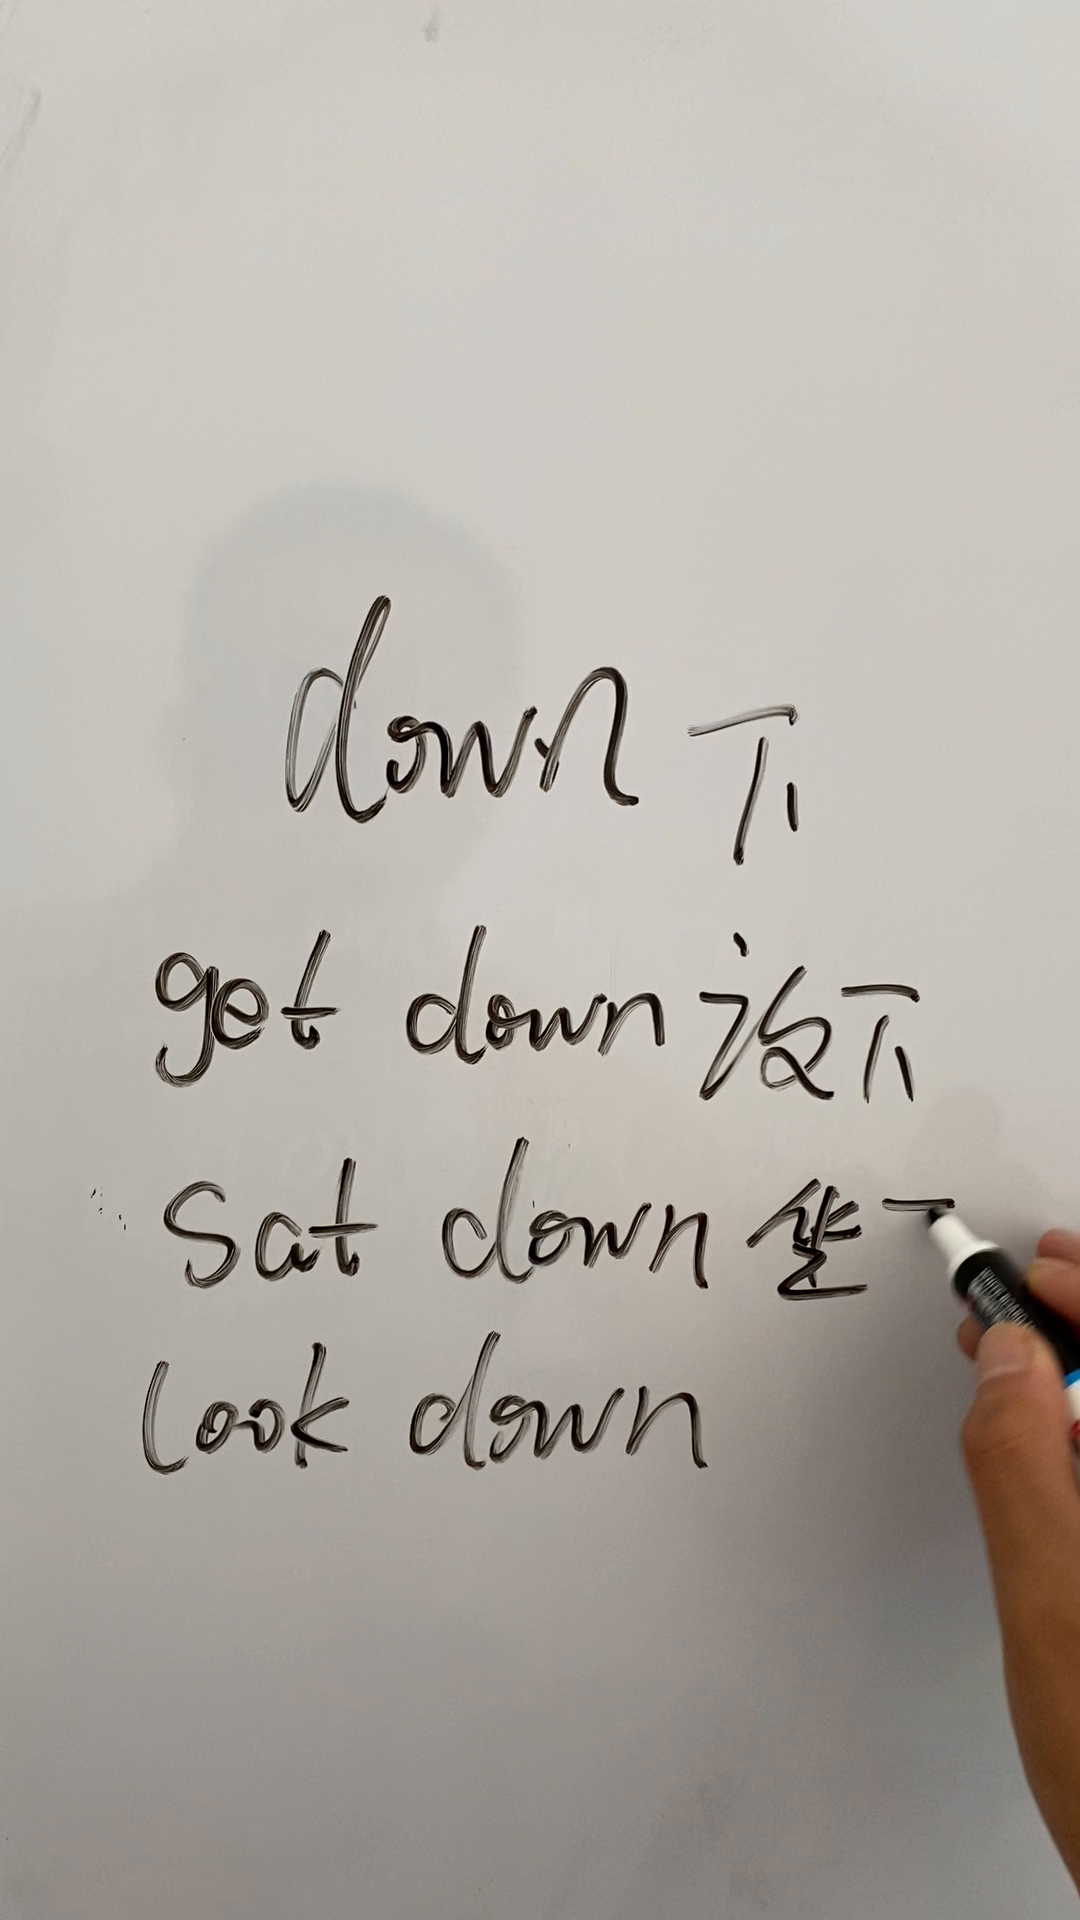 down 下
get down 设下
Sat down 坐
look down